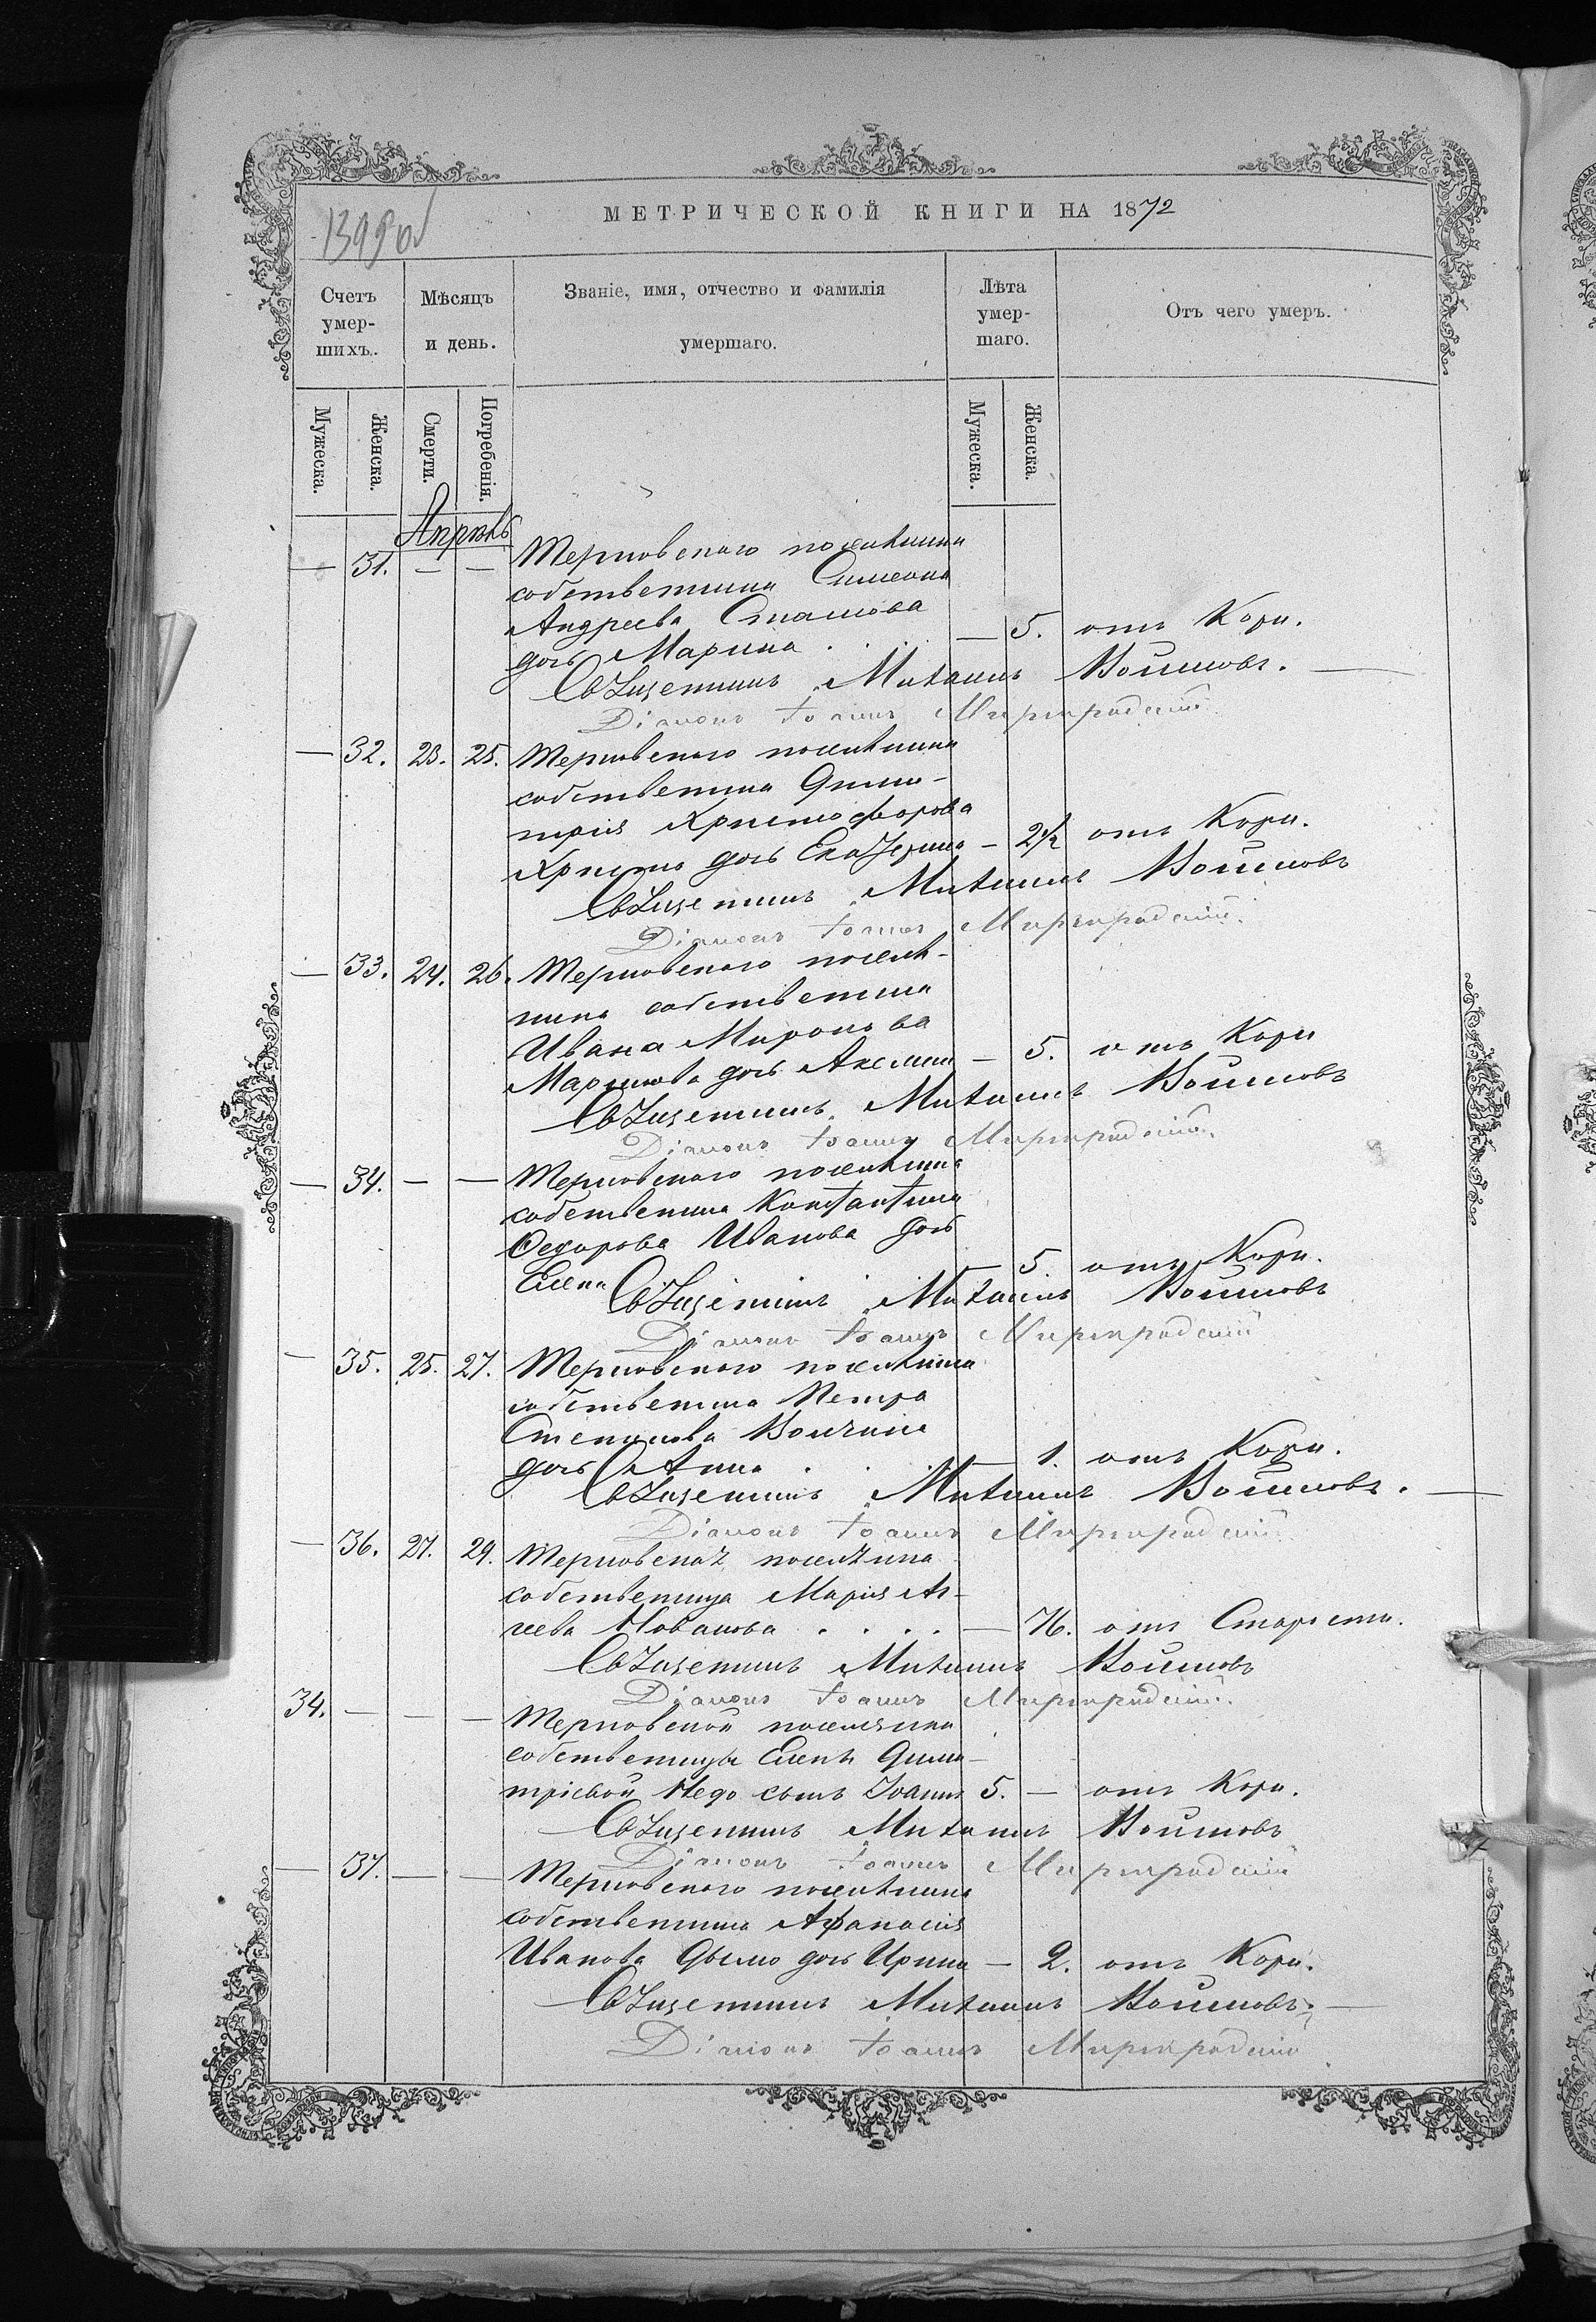 1398 об
МЕТРИЧЕСКОЙ КНИГИ НА 1872
Счетъ умер-шихъ.
Мѣсяцъ и день.
Званіе, имя, отчество и фамилія умершаго.
Лѣта умер-шаго.
Отъ чего умеръ.
Мужеска.
Женска.
Смерти.
Погребенія.
Мужеска.
Женска.
Апрѣль
— 31. — — Терновскаго поселянина
собственника Симеона
Андреева
дочь Марина . . . — 5. отъ Кори.
Священникъ Михаилъ Войновъ.
Діаконъ Іоаннъ Миргородскій
— 32. 23. 25. Терновскаго поселянина
собственника Дими-
трія Христофорова
Христо дочь Екатерина — 2½ отъ Кори.
Священникъ Михаилъ Войновъ
Діаконъ Іоаннъ Миргородскій.
— 33. 24. 26. Терновскаго поселя-
нина собственника
Ивана Миронова
Маринова дочь — 5. отъ Кори
Священникъ Михаилъ Войновъ
Діаконъ Іоаннъ Миргородскій.
— 34. — — Терновскаго поселянина
собственника Константина
Федорова Иванова дочь
Елена — 5 отъ Кори.
Священникъ Михаилъ Войновъ
Діаконъ Іоаннъ Миргородскій
— 35. 25. 27. Терновскаго поселянина
собственника Петра
Степанова
дочь Анна . . . — 1. отъ Кори.
Священникъ Михаилъ Войновъ.
Діаконъ Іоаннъ Миргородскій
— 36. 27. 29. Терновская поселянка
собственница Марія
Новакова . . . . — 76. отъ Старости.
Священникъ Михаилъ Войновъ
Діаконъ Іоаннъ Миргородскій.
34. — — — Терновской поселянки
собственницы Елены Дими-
тріевой Недо сынъ Іоаннъ 5. — отъ Кори.
Священникъ Михаилъ Войновъ
Діаконъ Іоаннъ Миргородскій
— 37. — — Терновскаго поселянина
собственника Афанасія
Иванова дочь Ирина — 2. отъ Кори.
Священникъ Михаилъ Войновъ.
Діаконъ Іоаннъ Миргородскій